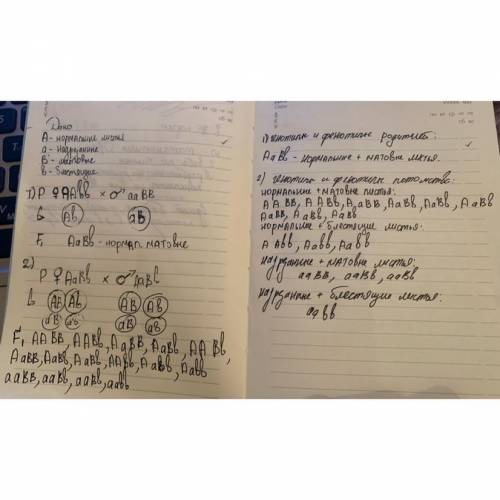 Дано
A - нормальные листья
a - надрезанные
B - матовые
b - блестящие
1) P ♀ AAbb × ♂ aaBB
G Ab aB
F₁ AaBb - нормал матовые
2)
P ♀ AaBb × ♂ AaBb
G AB Ab AB Ab
aB ab aB ab
F₁ AABB, AABb, AaBB, AaBb, AABb,
AaBB, AaBb, AaBb, AAbb, AaBb, Aabb
aaBB, aaBb, aaBb, aabb
1) генотипы и фенотипы родителей:
AaBb - нормальные + матовые листья.
2) генотипы и фенотипы потомства:
нормальные + матовые листья:
AABB, AABb, AaBB, AaBb, AaBb, AaBB
AaBB, AaBb, AaBb
нормальные + блестящие листья:
AAbb, Aabb, Aabb
надрезанные + матовые листья:
aaBB, aaBb, aaBb
надрезанные + блестящие листья:
aabb